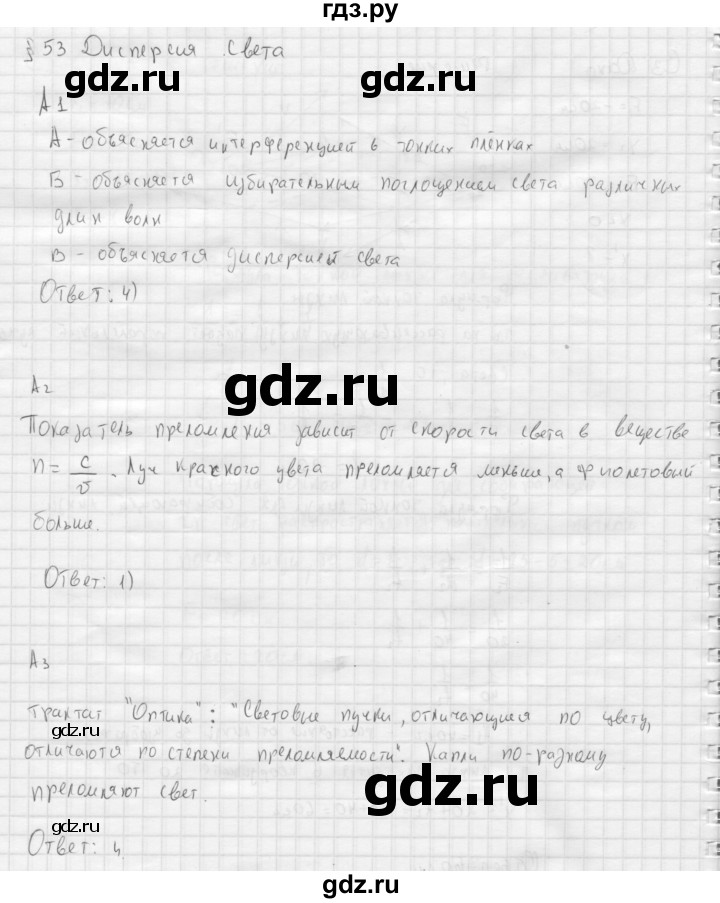 гдз.ру
§ 53 Дисперсия света
gdz.ru
gdz.ru
А1
А - объясняется интерференцией в тонких плёнках
Б - объясняется избирательным поглощением света различных
длин волн
В - объясняется дисперсией света
Ответ: 4)
gdz.ru
А2
Показатель преломления зависит от скорости света в веществе
n = c/v. Луч красного цвета преломляется меньше, а фиолетовый
больше.
Ответ: 1)
gdz.ru
А3
Трактат "Оптика": "Световые пучки, отличающиеся по цвету,
gdz.ru
отличаются по степени преломляемости". Капли по-разному
преломляют свет.
gdz.ru
gdz.ru
Ответ: 4
gdz.ru